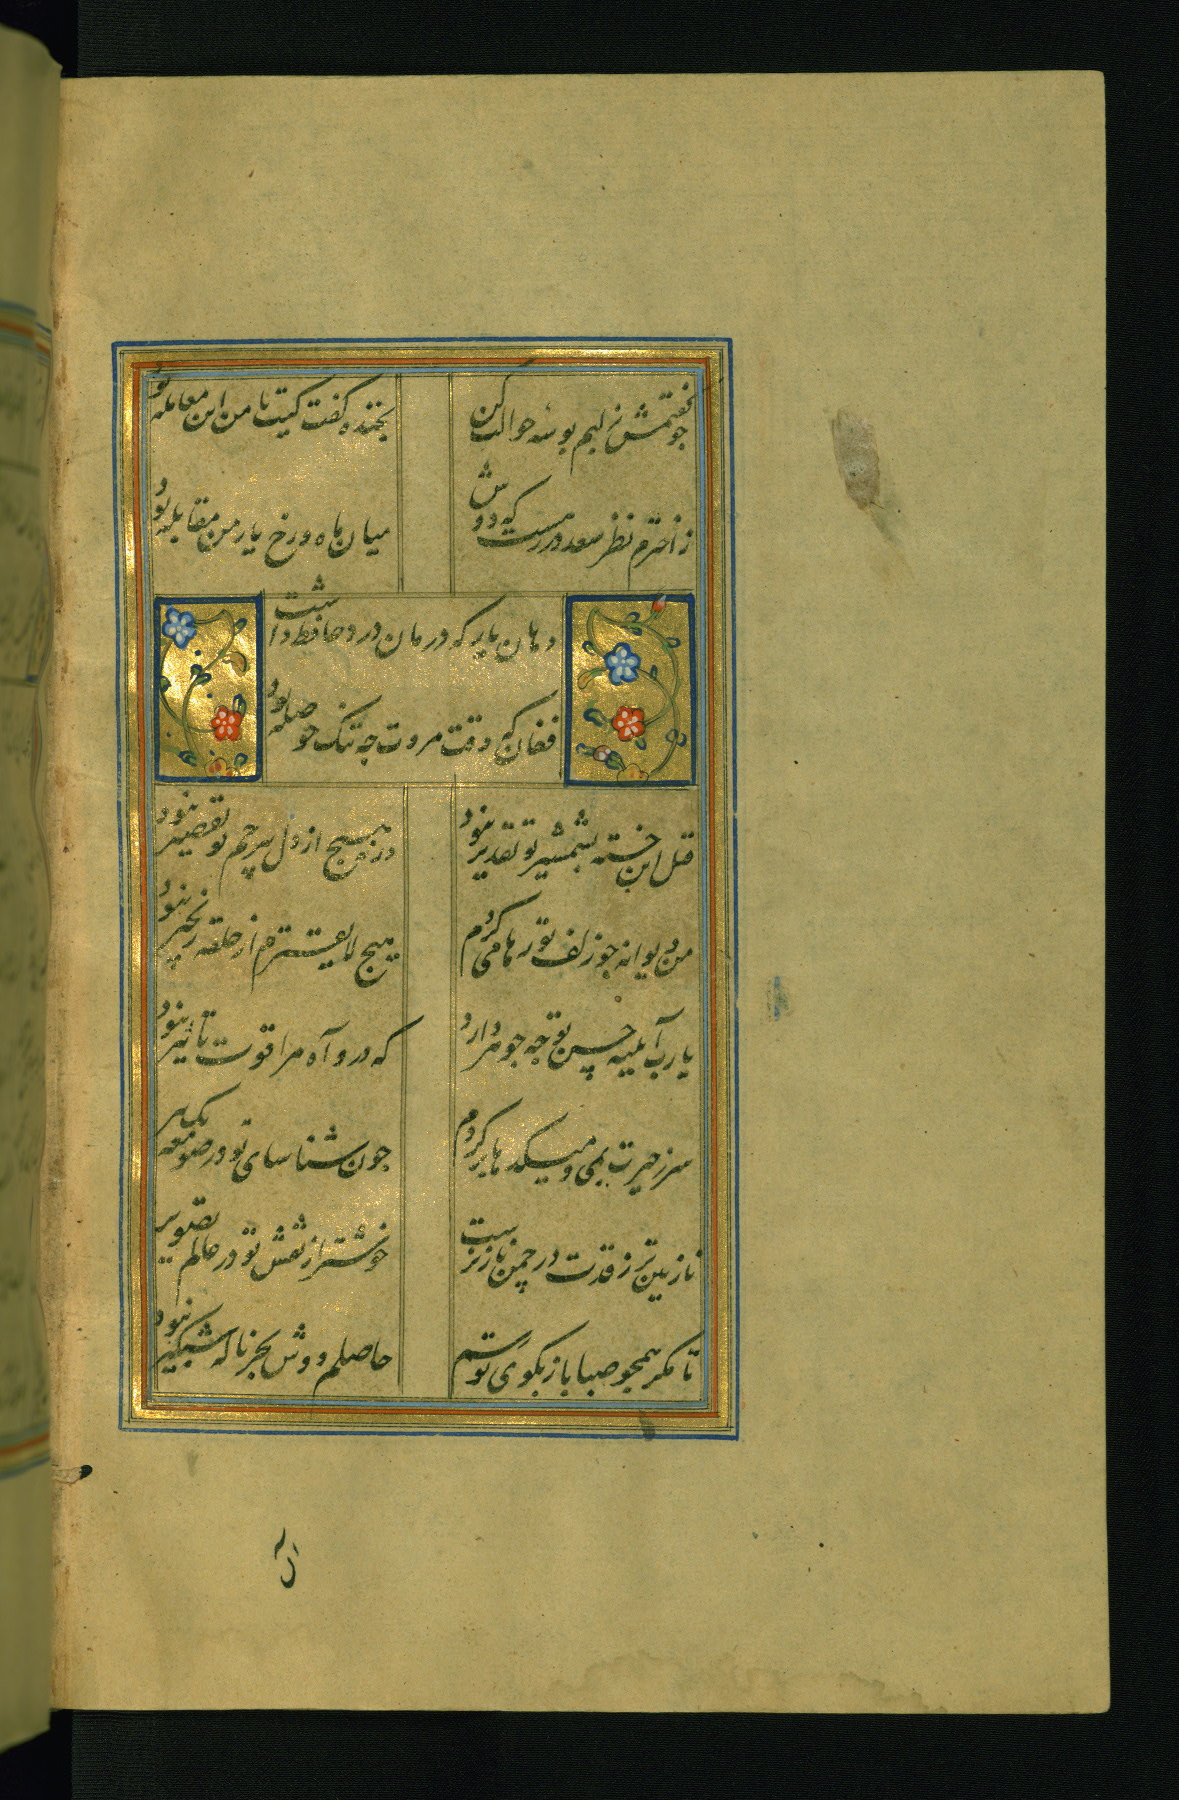 چو گفتمش ز لبم بوسه حوالت کن
بخنده گفت کیت با من این معامله بود
ز اخترم نظر سعد در رهست که دوش
میان ماه و رخ یار من مقابله بود
دهان یار که درمان درد حافظ داشت
فغان که وقت مروت چه تنگ حوصله بود
قتل این خسته بشمشیر تو تقدیر نبود
ورنه هیچ از دل بیرحم تو تقصیر نبود
من دیوانه چو زلف تو رها می کردم
هیچ لایقترم از حلقه زنجیر نبود
یا رب آیینه حسن تو چه جوهر دارد
که درو آه مرا قوت تاثیر نبود
سر ز حیرت بدر میکدها بر کردم
چون شناسای تو در صومعه یک پیر نبود
نازنین تر ز قدت در چمن ناز نرست
خوشتر از نقش تو در عالم تصویر نبود
تا مگر همچو صبا باز بکوی تو رسم
حاصلم دوش بجز ناله شبگیر نبود